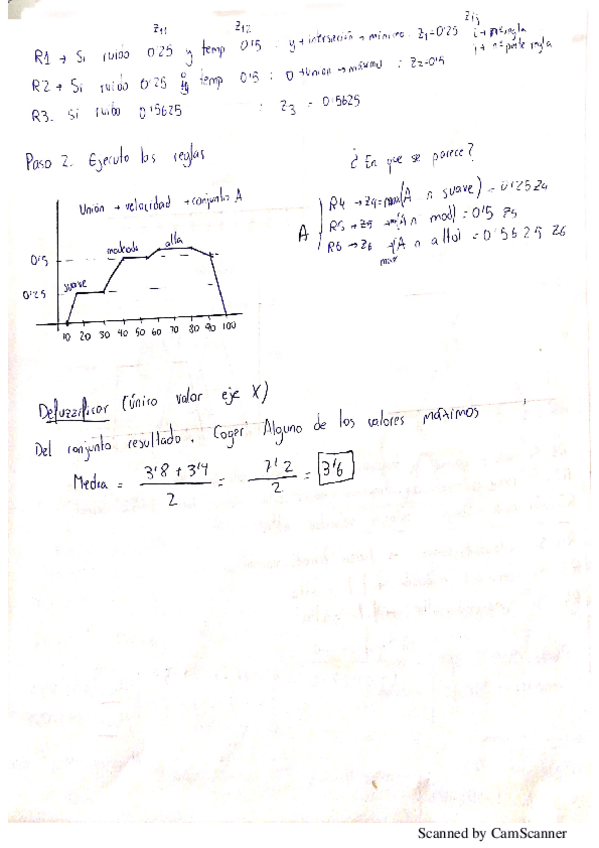 Z11 Z12 Zij
R1 → Si ruido 0'25 y temp 0'5 : y → intersección → mínimo Z1=0'25 i → nº regla
j → nº parte regla
R2 → Si ruido 0'25 o temp 0'5 : o → unión → máximo : Z2=0'5
R3. Si ruido 0'5625 : Z3 = 0'5625
Paso 2. Ejecuto las reglas
¿En que se parece?
Unión → velocidad → conjunto A
A
R4 → Z4= (A ∩ suave) = 0'25 Z4
R5 → Z5 (A ∩ mod) = 0'5 Z5
R6 → Z6 (A ∩ alto) = 0'5625 Z6
max
0'5
0'25
suave
alta
10 20 30 40 50 60 70 80 90 100
Defuzzificar (único valor eje X)
Del conjunto resultado. Coger Alguno de los valores máximos
Media = 3'8 + 3'4 / 2 = 7'2 / 2 = 3'6
Scanned by CamScanner